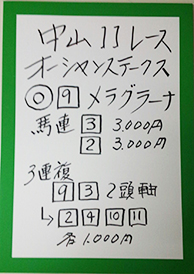 中山11レース
オーシャンステークス
◎ 9 メラグラーナ
馬連 3 3.000円
2 3.000円
3連複
9 3 2頭軸
↳ 2 4 10 11
各1.000円